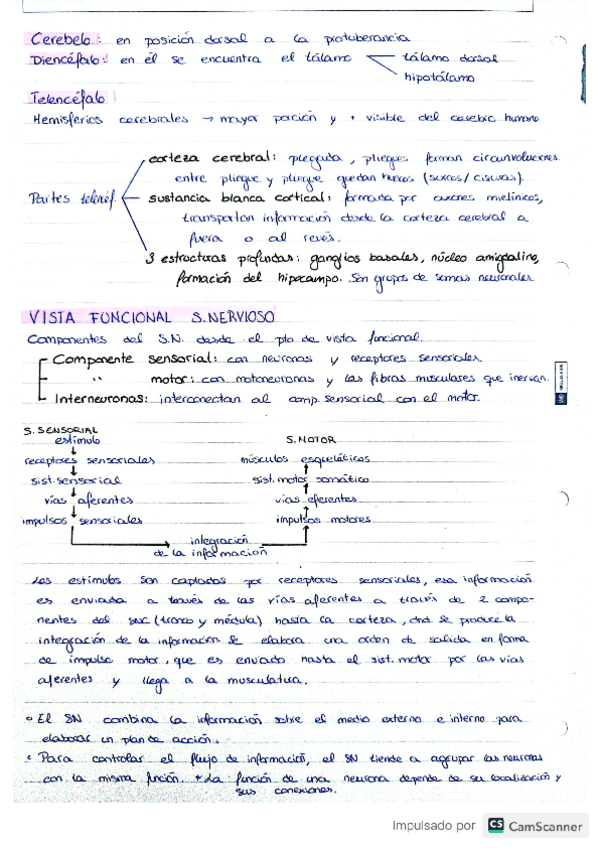 Cerebelo: en posición dorsal a la protuberancia
Diencéfalo: en él se encuentra el tálamo
tálamo dorsal
hipotálamo
Telencéfalo
Hemisferios cerebrales → mayor porción y + visible del cerebro humano
Partes telenf.
corteza cerebral: plegada, pliegues forman circunvoluciones
entre pliegue y pliegue quedan huecos (surcos/cisuras).
sustancia blanca cortical: formada por axones mielínicos,
transportan información desde la corteza cerebral a
fuera o al revés.
3 estructuras profundas: ganglios basales, núcleo amigdalino,
formación del hipocampo. Son grupos de somas neuronales
VISTA FUNCIONAL S.NERVIOSO
Componentes del S.N. desde el pto de vista funcional.
Componente sensorial: con neuronas y receptores sensoriales
" motor: con motoneuronas y las fibras musculares que inervan.
Interneuronas: interconectan al comp. sensorial con el motor.
S. SENSORIAL
estímulo
receptores sensoriales
sist. sensorial
vías aferentes
impulsos sensoriales
S. MOTOR
músculos esqueléticos
sist. motor somático
vías eferentes
impulsos motores
integración
de la información
Los estímulos son captados por receptores sensoriales, esa información
es enviada a través de las vías aferentes a través de 2 compo-
nentes del SNC (tronco y médula) hasta la corteza, dnd se produce la
integración de la información se elabora una orden de salida en forma
de impulso motor, que es enviado hasta el sist. motor por las vías
aferentes y llega a la musculatura.
• El SN combina la información sobre el medio externo e interno para
elaborar un plan de acción.
• Para controlar el flujo de información, el SN tiende a agrupar las neuronas
con la misma función. * La función de una neurona depende de su localización y
sus conexiones.
Impulsado por CS CamScanner